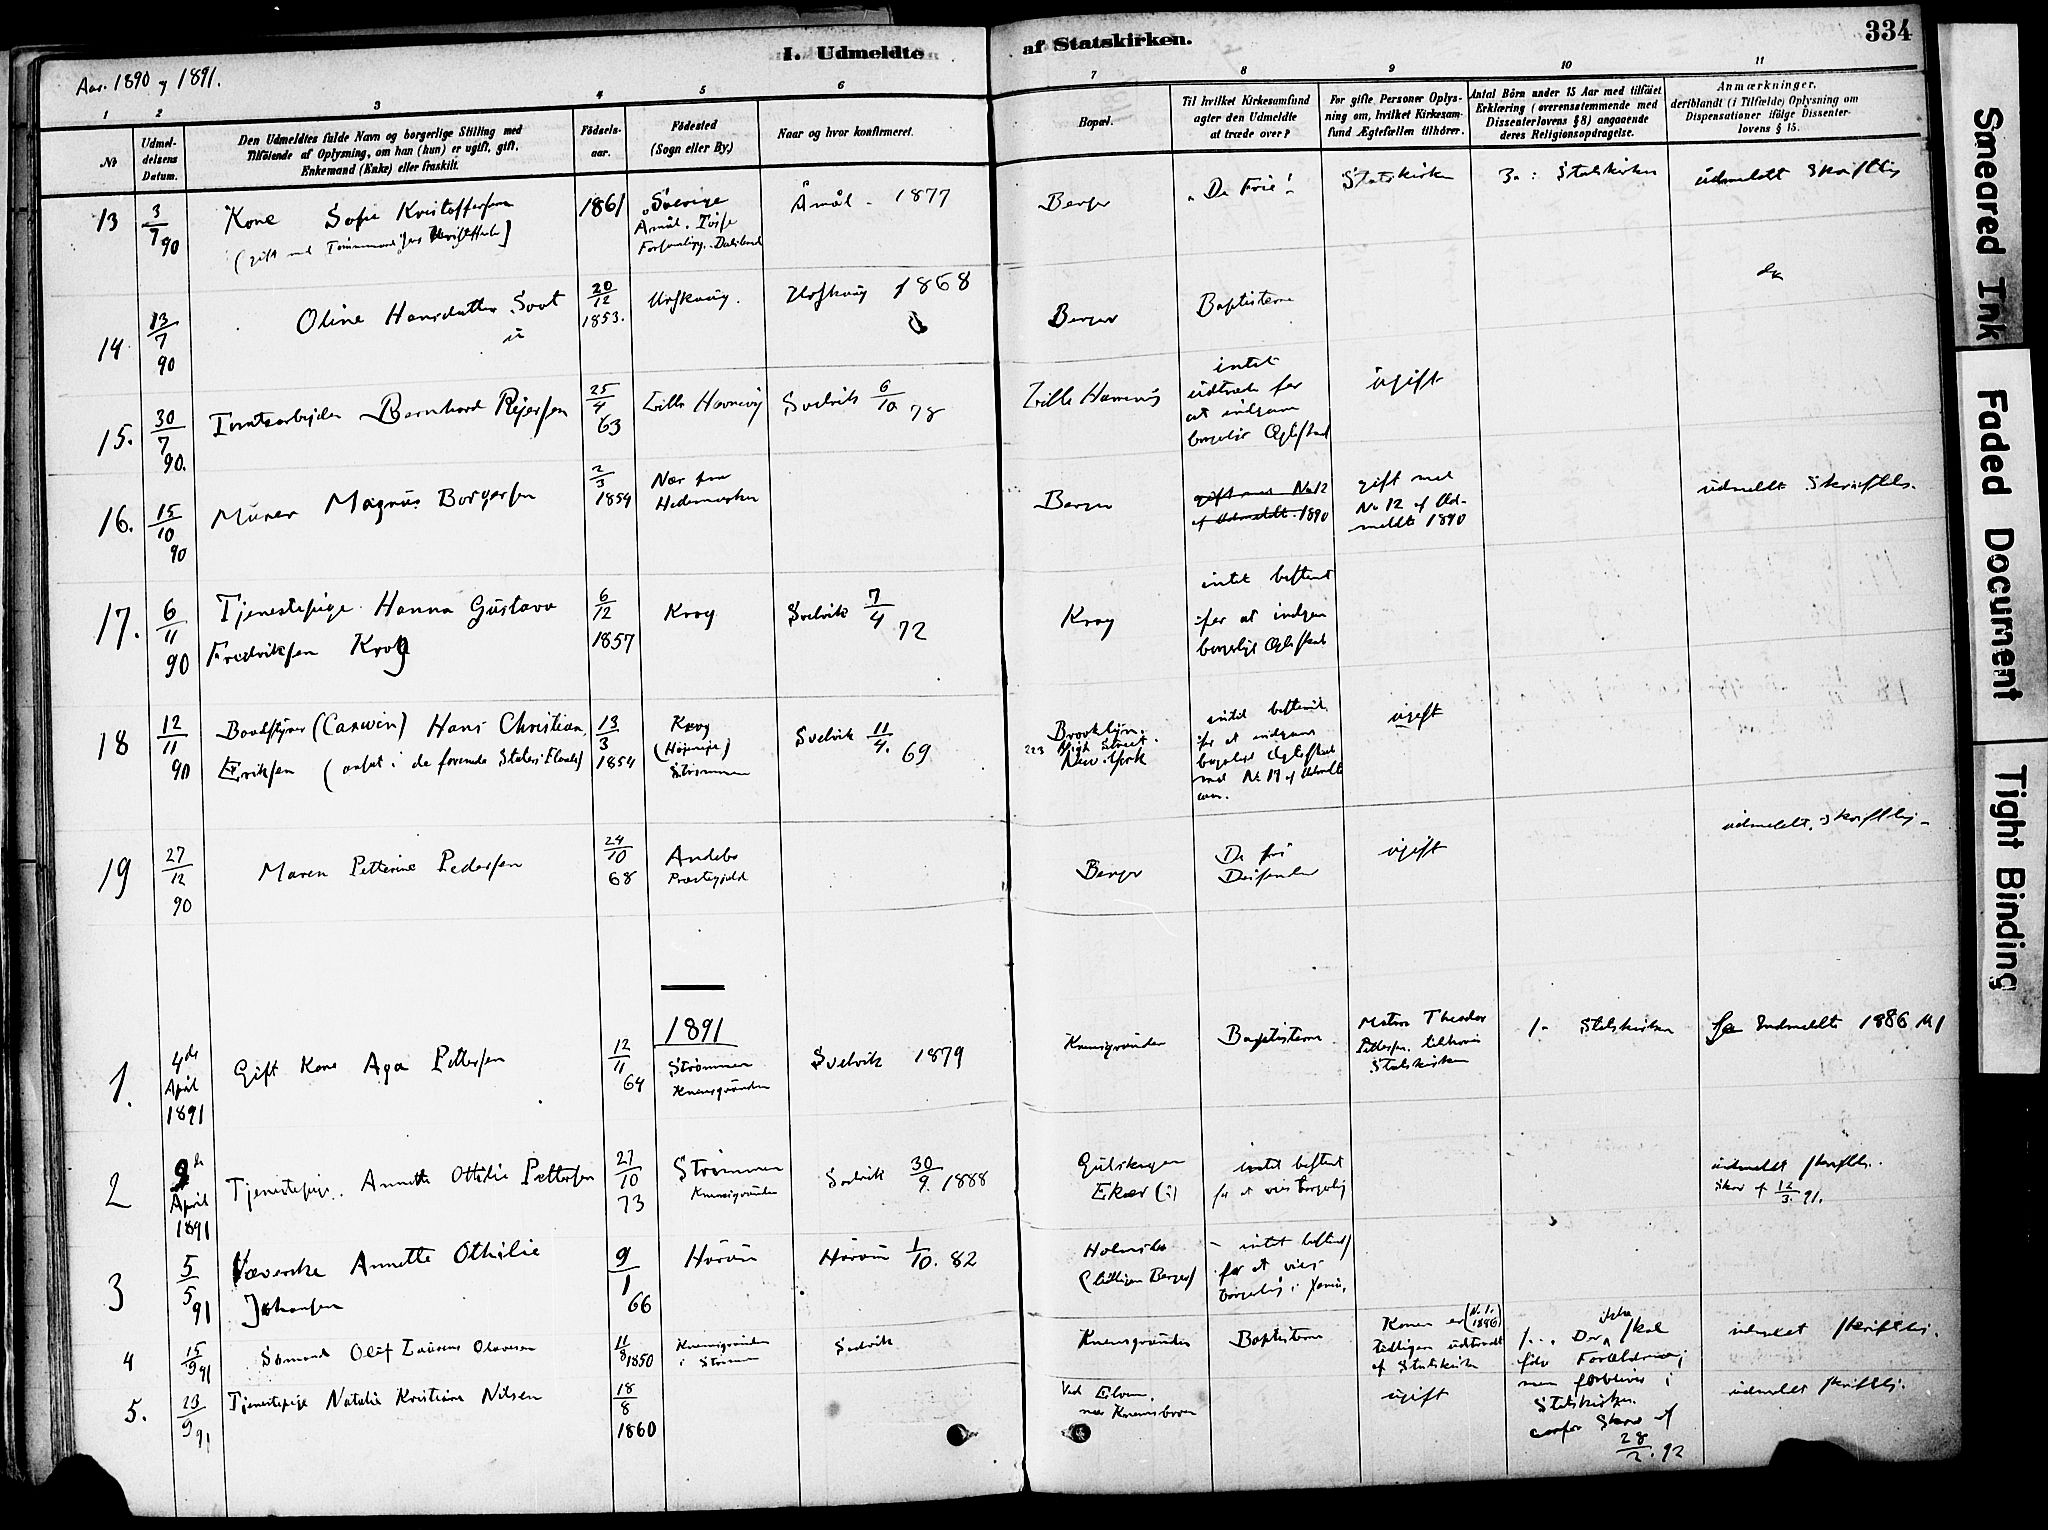 I. Udmeldte af Statskirken.
334
Aar. 1890 og 1891.
1 2 3 4 5 6 7 8 9 10 11
№
Udmeldelsens Datum.
Den Udmeldtes fulde Navn og borgerlige Stilling med
Tilføiende af Oplysning, om han (hun) er ugift, gift,
Enkemand (Enke) eller fraskilt.
Fødselsaar.
Fødested
(Sogn eller By.)
Naar og hvor konfirmeret.
Bopæl.
Til hvilket Kirkesamfund
agter den Udmeldte
at træde over?
For gifte Personer Oplysning om, hvilket Kirkesamfund Ægtefællen tilhører.
Antal Børn under 15 Aar med tilføiet
Erklæring (overensstemmende med
Dissenterlovens § 8) angaaende
deres Religionsopdragelse.
Anmærkninger,
deriblandt (i Tilfælde) Oplysning om
Dispensationer ifølge Dissenterlovens § 15.
13 3/7 90 Kone Sofie Kristoffersen 1861 Sverige Åmål. Åmål - 1877 Berger "De Frie" Statskirken 3 : Statskirken udmeldt skriftlig
(gift med
14 13/7 90 Oline Hansdatter Soot 20/12 1853. Urskoug. Urskoug 1868 Berger Baptisterne do
15. 30/7 90. Tomtearbejder Bernhard Rejersen 25/4 63 Lille Havnevig Svelvik 6/10 78 Lille Havnevig intet
udtræde for
at indgaa
borgerlig Ægteskab ugift
16. 15/10 90 Murer Magnus Borgersen 2/3 1854 Nær fra
Hedemarken Berger gift med No 12
af Udmeldt. 1890 gift med
No 12 af Udmeldte 1890 udmeldt skriftlig.
17. 6/11 90 Tjenestepige Hanna Gustava
Fredriksen Krog 6/12 1857 Krog Svelvik 7/4 72 Krog intet bestemt
for at indgaa
borgerligt Ægteskab
18 12/11 90 Baadstyrer (Carwin) Hans Christian
Eriksen (ansat i de forenede Staters Flaade) 13/3 1854 Krog
Strømmen Svelvik 11/4. 69 Brooklyn.
223 High Street
New-York intet bestemt
for at indgaa
borgerligt Ægteskab
med No 17 af Udmeldte
ugift
19 27/12 90 Maren Petterine Pedersen 24/10 68 Andebo
Præstegjeld Berger De fri
ugift udmeldt skriftlig.
1891
1. 4de April 1891 Gift Kone Aga Pettersen 12/11 64 Strømmen Svelvik 1879 Baptisterne Theodor
Pettersen tilhører
Statskirken 1 Statskirken Indmeldte 1886 № 1
2 9de April 1891 Tjenestepige Annette Othilie Pettersen 27/10 73 Strømmen Svelvik 30/9. 1888 Gulskogen
Eker (:) intet bestemt
for at vies borgerlig udmeldt skriftlig.
Skr. af 12/3. 91.
3 5/5 91 Væverske Annette Othilie
Johansen 9/1 66 Hurum Hurum 1/10. 82 Holmsbo
(tidligere Berger) intet bestemt
for at vies
borgerlig i
4 15/9 91 Sømand Oluf Laurens Olavesen 11/8 1850 i Strømm Svelvik Baptisterne Konen er (No. 1. 1886)
tidligere udtraadt
af Statskirken 1. Der ikke skal
men forbliver i
Statskirken.
Skriv. af
28/2. 92 udmeldt skriftlig.
5. 23/9 91 Tjenestepige Natalie Kristiane Nilsen 18/8 1860 Ved Elven, ugift udmeldt skriftlig.
Smeared Ink
Faded Document
Tight Binding